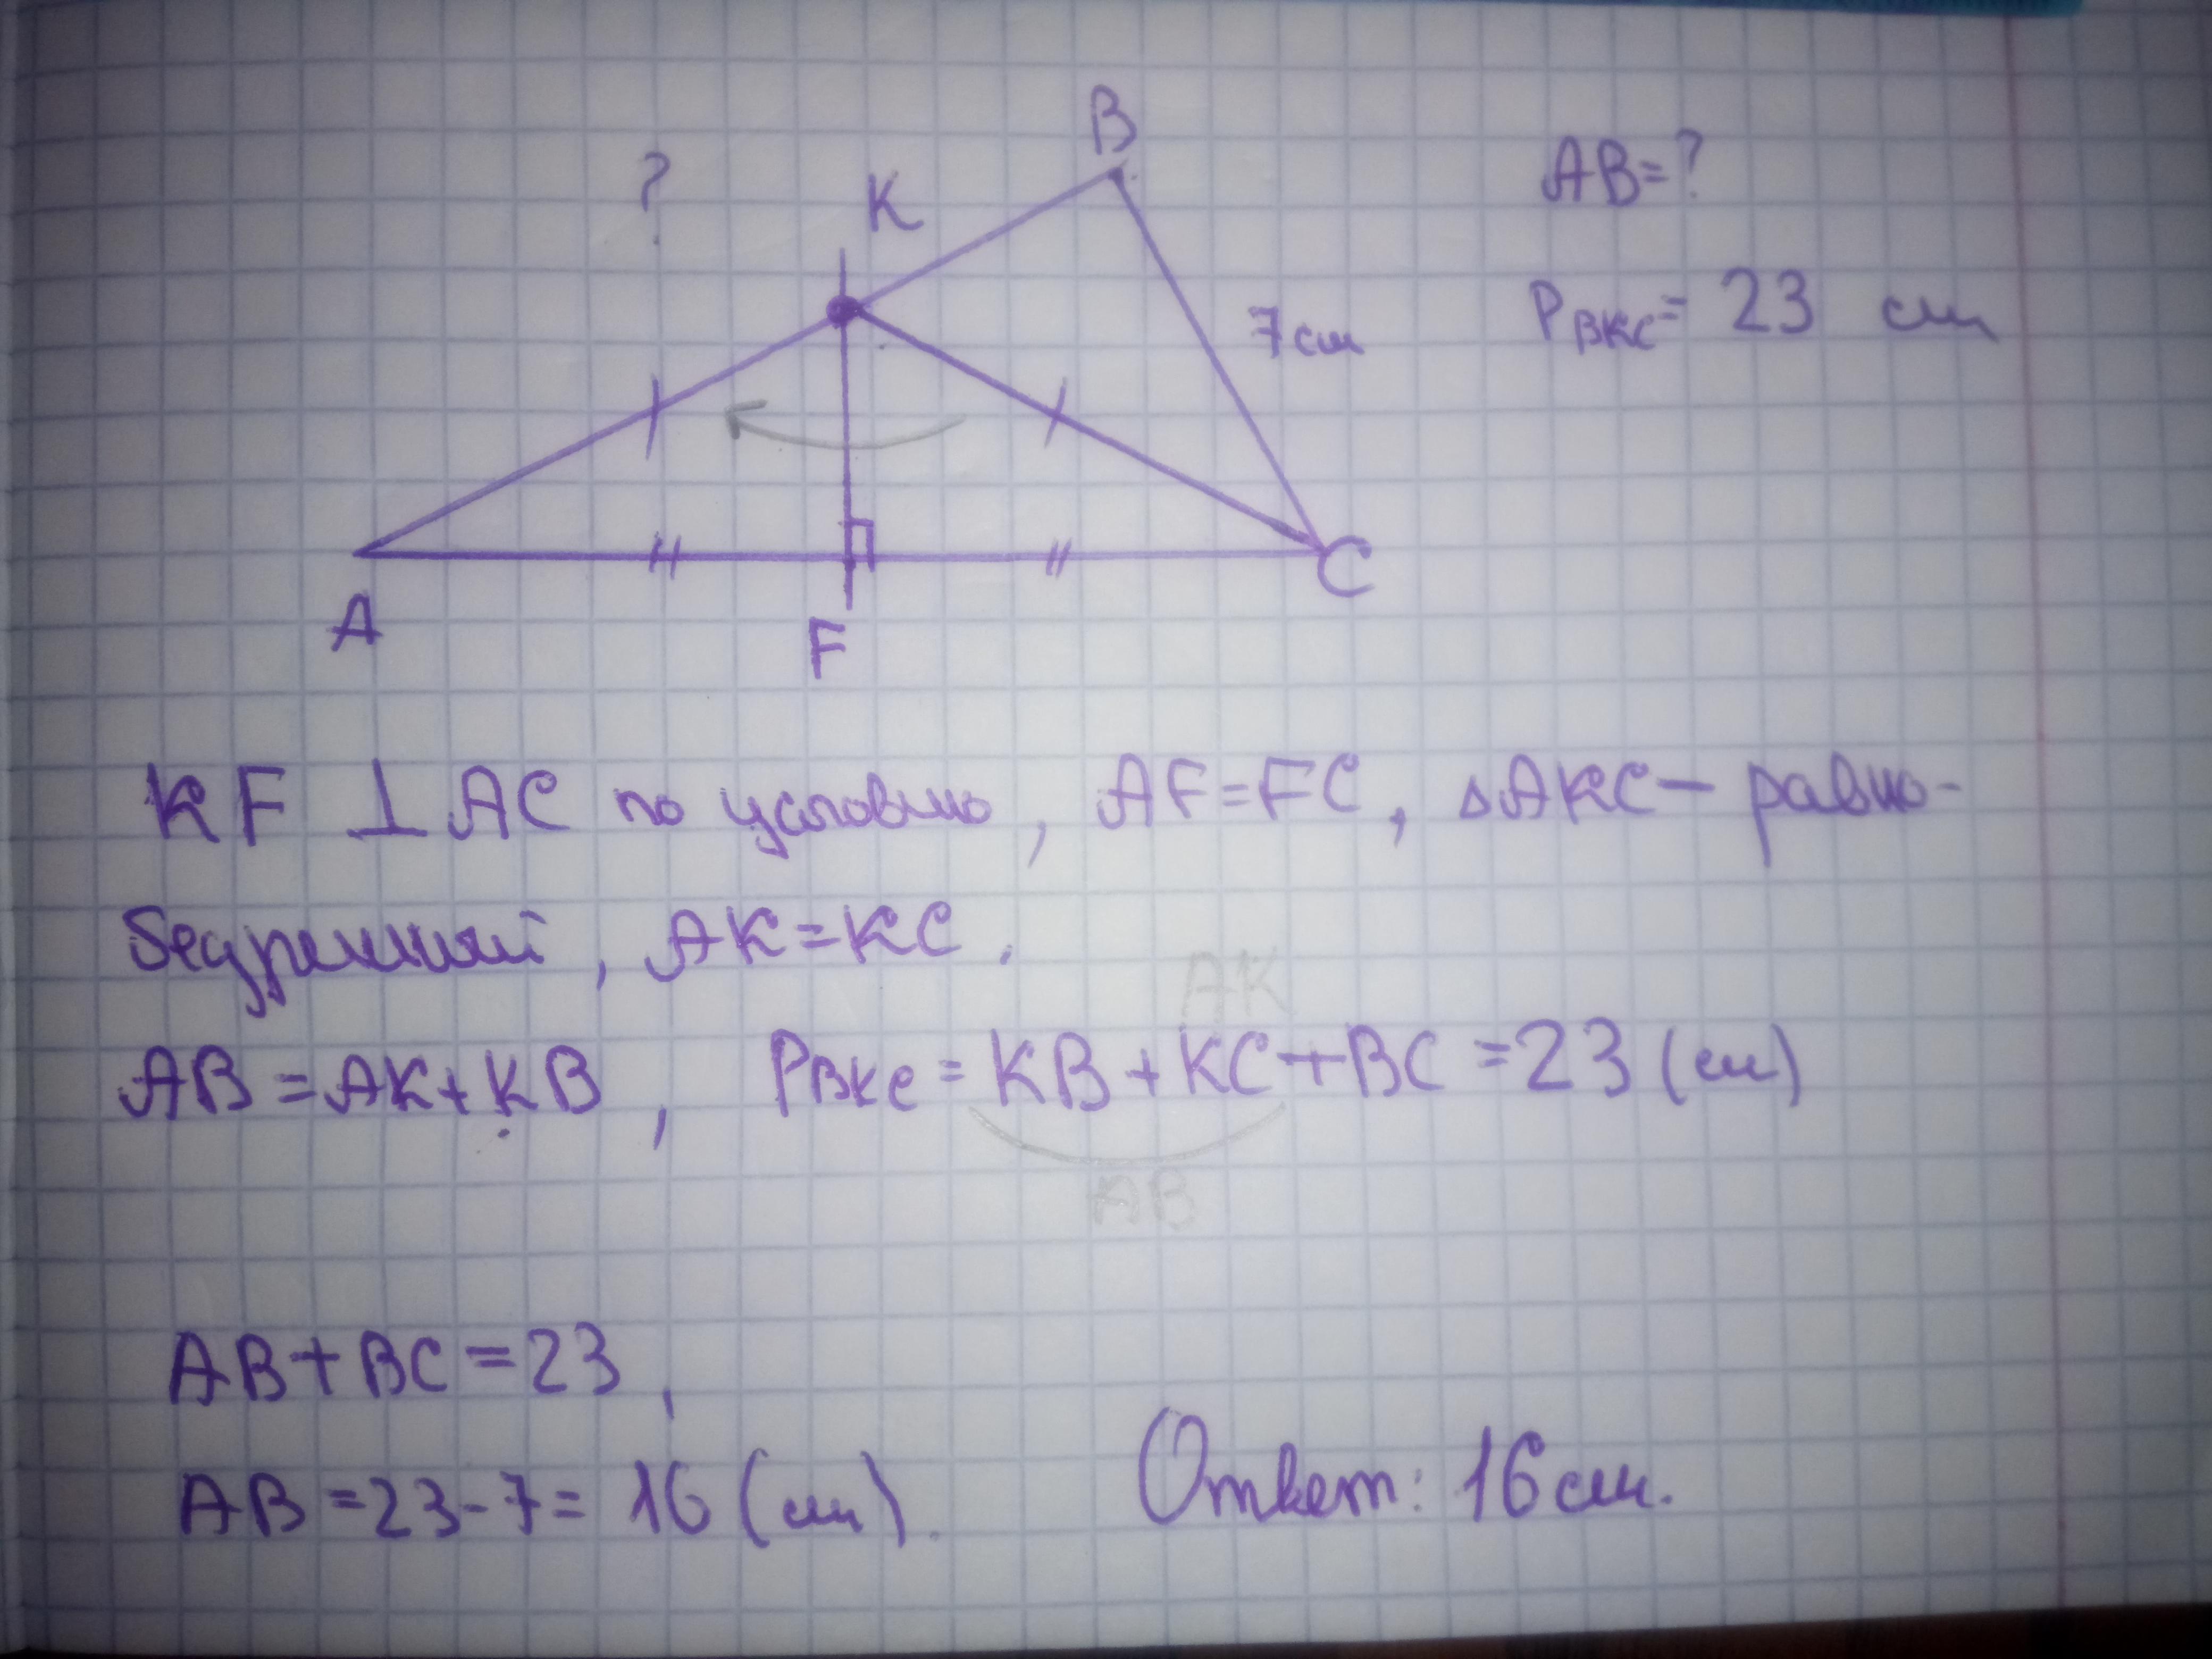 B
?
K
AB=?
7см
P_BKC = 23 см
A
F
C
KF ⊥ AC по условию, AF=FC, ΔAKC — равно-
бедренный, AK=KC.
AK
AB = AK+KB, P_BKC = KB+KC+BC =23 (см)
AB
AB+BC=23,
AB =23-7= 16 (см).
Ответ: 16см.